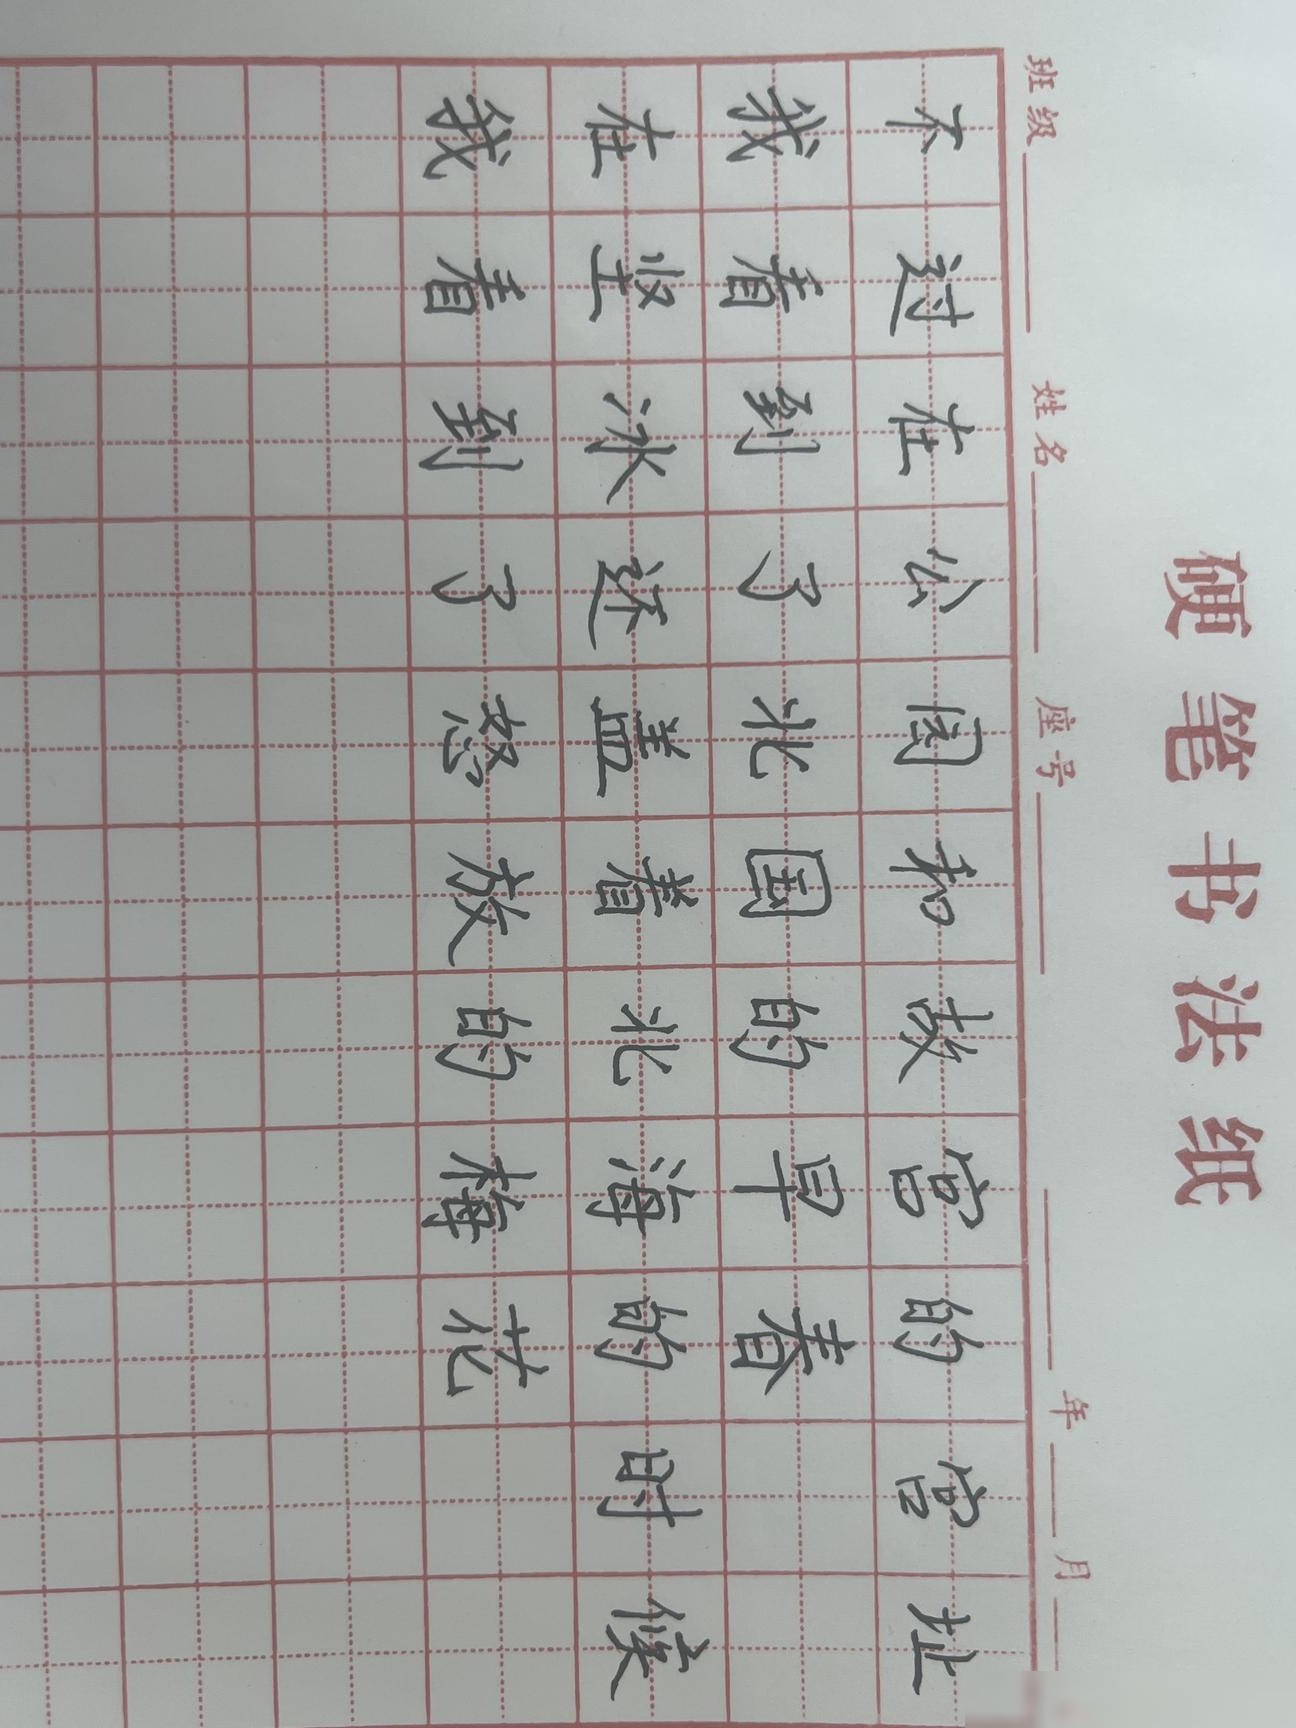 硬笔书法纸
班级 姓名 座号 年 月
不过在公园和故宫的宫址
我看到了北国的早春
在坚冰还盖着北海的时候
我看到了怒放的梅花